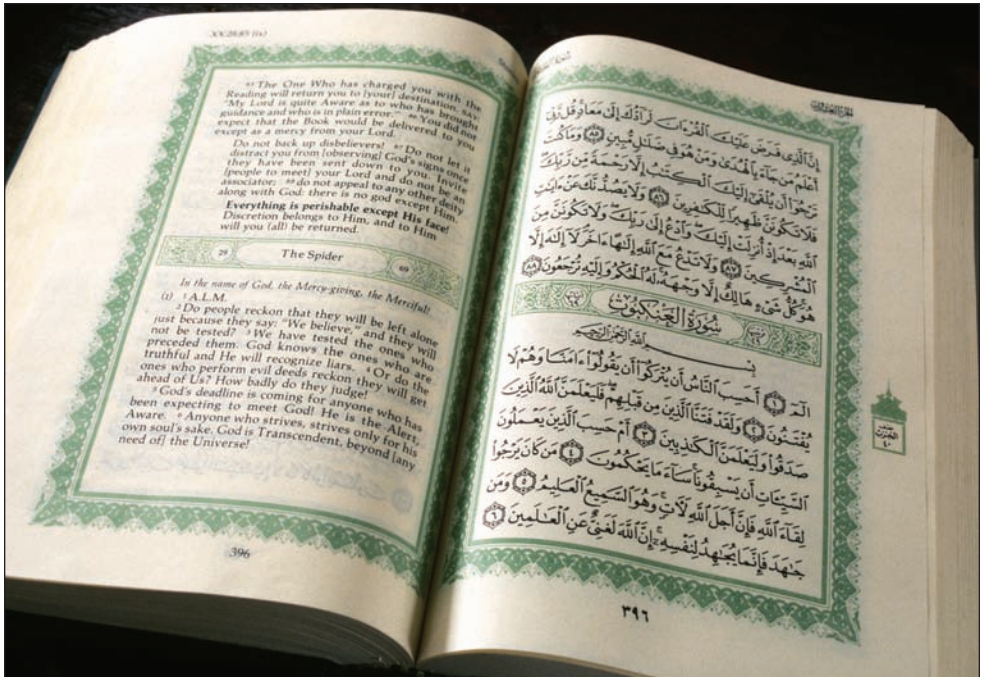 XX:28:85 (ix)
⁸⁵ The One Who has charged you with the
Reading will return you to [your] destination. SAY:
"My Lord is quite Aware as to who has brought
guidance and who is in plain error." ⁸⁶ You did not
expect that the Book would be delivered to you
except as a mercy from your Lord.
Do not back up disbelievers! ⁸⁷ Do not let it
distract you from [observing] God's signs once
they have been sent down to you. Invite
[people to meet] your Lord and do not be an
associator; ⁸⁸ do not appeal to any other deity
along with God: there is no god except Him.
Everything is perishable except His face!
Discretion belongs to Him, and to Him
will you (all) be returned.
29 The Spider 69
In the name of God, the Mercy-giving, the Merciful!
(I) ¹ A.L.M.
² Do people reckon that they will be left alone
just because they say: "We believe," and they will
not be tested? ³ We have tested the ones who
preceded them. God knows the ones who are
truthful and He will recognize liars. ⁴ Or do the
ones who perform evil deeds reckon they will get
ahead of Us? How badly do they judge!
⁵ God's deadline is coming for anyone who has
been expecting to meet God! He is the Alert,
Aware. ⁶ Anyone who strives, strives only for his
own soul's sake. God is Transcendent, beyond [any
need of] the Universe!
396
إِنَّ الَّذِى فَرَضَ عَلَيْكَ الْقُرْءَانَ لَرَآدُّكَ إِلَىٰ مَعَادٍ قُل رَّبِّى
أَعْلَمُ مَن جَآءَ بِالْهُدَىٰ وَمَنْ هُوَ فِى ضَلَٰلٍ مُّبِينٍ ٨٥ وَمَا كُنتَ
تَرْجُوٓا۟ أَن يُلْقَىٰٓ إِلَيْكَ الْكِتَٰبُ إِلَّا رَحْمَةً مِّن رَّبِّكَ
فَلَا تَكُونَنَّ ظَهِيرًا لِّلْكَٰفِرِينَ ٨٦ وَلَا يَصُدُّنَّكَ عَنْ ءَايَٰتِ
اللَّهِ بَعْدَ إِذْ أُنزِلَتْ إِلَيْكَ وَادْعُ إِلَىٰ رَبِّكَ وَلَا تَكُونَنَّ مِنَ
الْمُشْرِكِينَ ٨٧ وَلَا تَدْعُ مَعَ اللَّهِ إِلَٰهًا ءَاخَرَ لَآ إِلَٰهَ إِلَّا
هُوَ كُلُّ شَىْءٍ هَالِكٌ إِلَّا وَجْهَهُۥ لَهُ الْحُكْمُ وَإِلَيْهِ تُرْجَعُونَ ٨٨
سُورَةُ الْعَنكَبُوتِ
بِسْمِ اللَّهِ الرَّحْمَٰنِ الرَّحِيمِ
الٓمٓ ١ أَحَسِبَ النَّاسُ أَن يُتْرَكُوٓا۟ أَن يَقُولُوٓا۟ ءَامَنَّا وَهُمْ لَا
يُفْتَنُونَ ٢ وَلَقَدْ فَتَنَّا الَّذِينَ مِن قَبْلِهِمْ فَلَيَعْلَمَنَّ اللَّهُ الَّذِينَ
صَدَقُوا۟ وَلَيَعْلَمَنَّ الْكَٰذِبِينَ ٣ أَمْ حَسِبَ الَّذِينَ يَعْمَلُونَ
السَّيِّـَٔاتِ أَن يَسْبِقُونَا سَآءَ مَا يَحْكُمُونَ ٤ مَن كَانَ يَرْجُوا۟
لِقَآءَ اللَّهِ فَإِنَّ أَجَلَ اللَّهِ لَـَٔاتٍ وَهُوَ السَّمِيعُ الْعَلِيمُ ٥ وَمَن
جَٰهَدَ فَإِنَّمَا يُجَٰهِدُ لِنَفْسِهِۦٓ إِنَّ اللَّهَ لَغَنِىٌّ عَنِ الْعَٰلَمِينَ ٦
٣٩٦